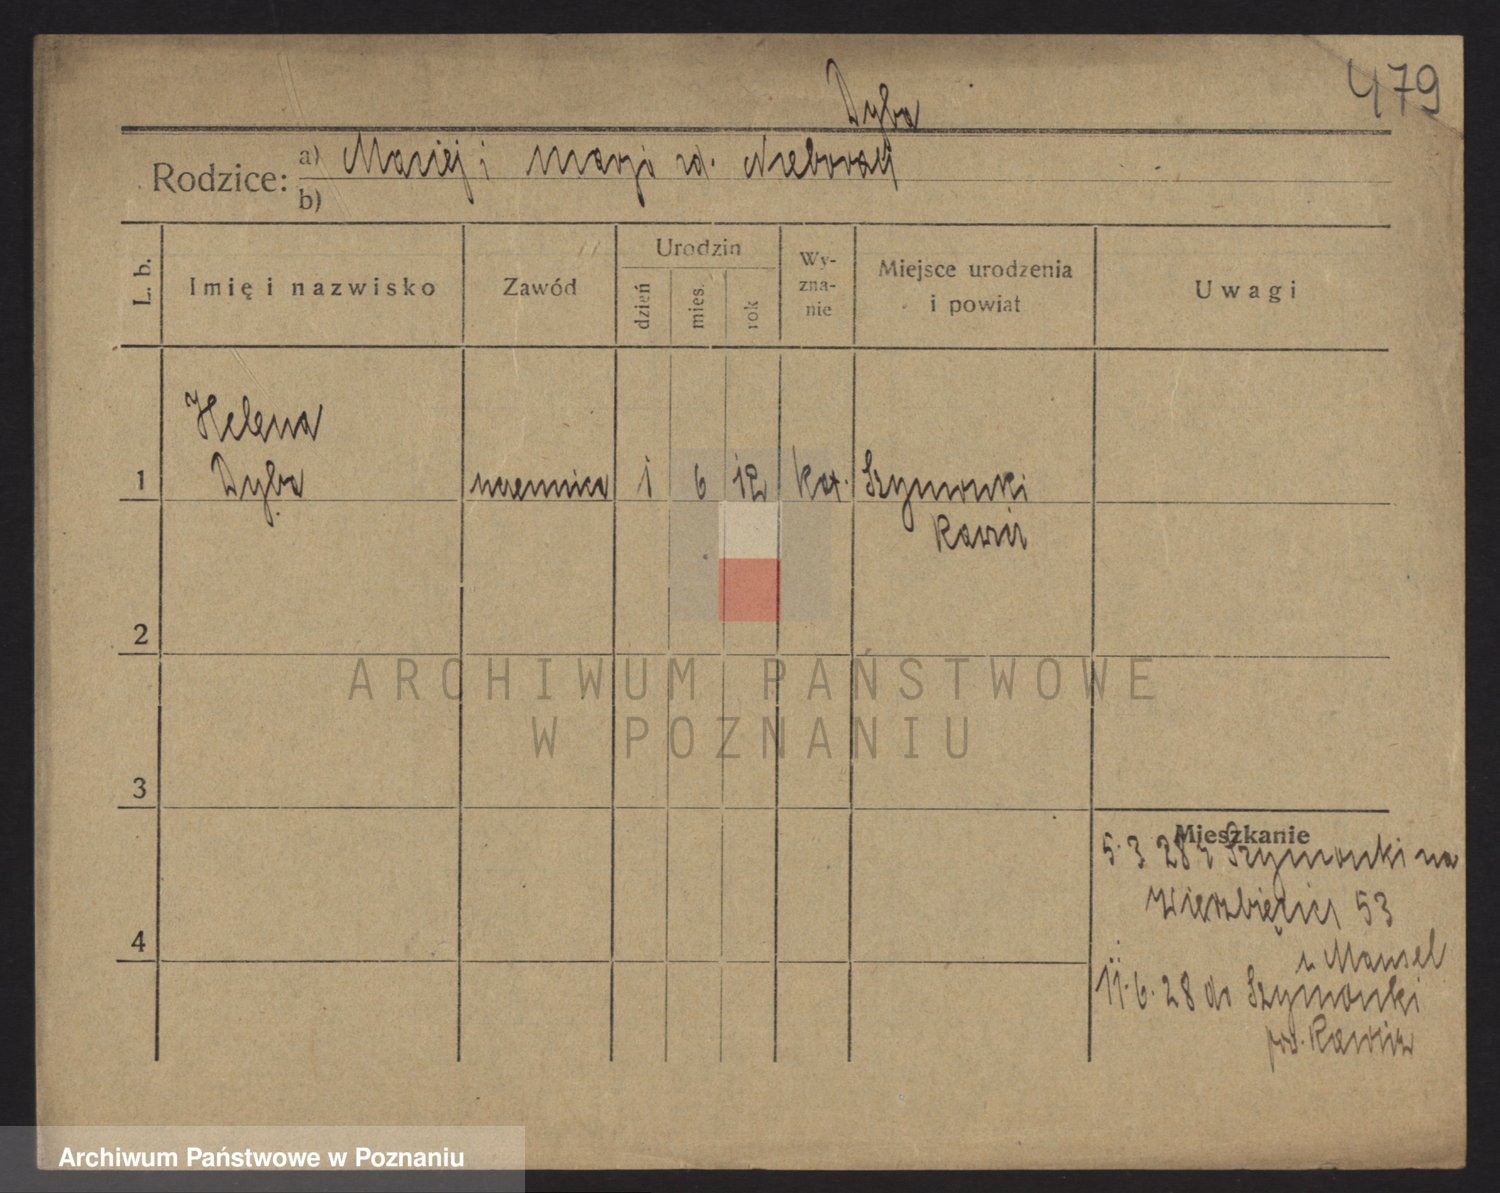 479
Dyba
Rodzice: a) Maciej i Marja rd.
b)
L. b. Imię i nazwisko Zawód Urodzin dzień mies. rok Wy-zna-nie Miejsce urodzenia i powiat Uwagi
Helena
1 Dyba 1 6 12 kat. Szymonki
Rawicz
2
ARCHIWUM PAŃSTWOWE
W POZNANIU
3
Mieszkanie
5.3 28 z Szymonki na
Wierzbięcice 53
4
u Mansel
11.6.28 do Szymonki
pow. Rawicz
Archiwum Państwowe w Poznaniu